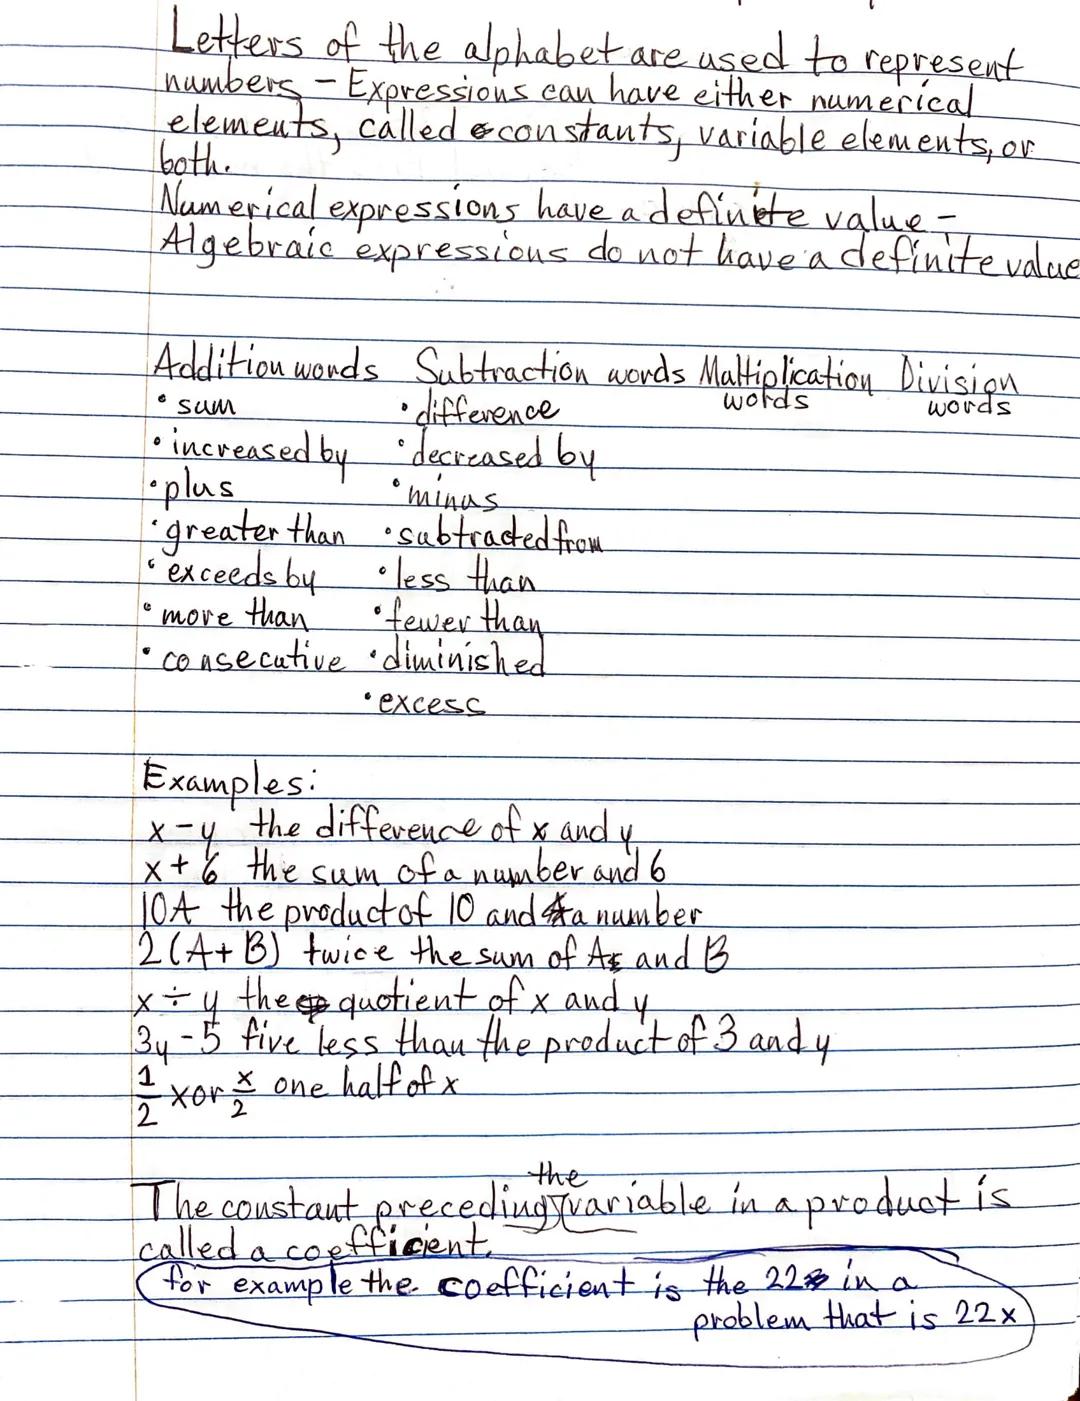 Letters of the alphabet are used to represent
numbers - Expressions can have either numerical
elements, called constants, variable elements, or
both.
Numerical expressions have a definite value -
Algebraic expressions do not have a definite value
Addition words Subtraction words Multiplication words Division words
• sum • difference
• increased by • decreased by
• plus • minus
• greater than • subtracted from
• exceeds by • less than
• more than • fewer than
• consecutive • diminished
• excess
Examples:
x - y the difference of x and y
x + 6 the sum of a number and 6
10A the product of 10 and a number
2(A+B) twice the sum of A and B
x ÷ y the quotient of x and y
3y - 5 five less than the product of 3 and y
1/2 x or x/2 one half of x
The constant preceding the variable in a product is
called a coefficient.
for example the coefficient is the 22 in a
problem that is 22x